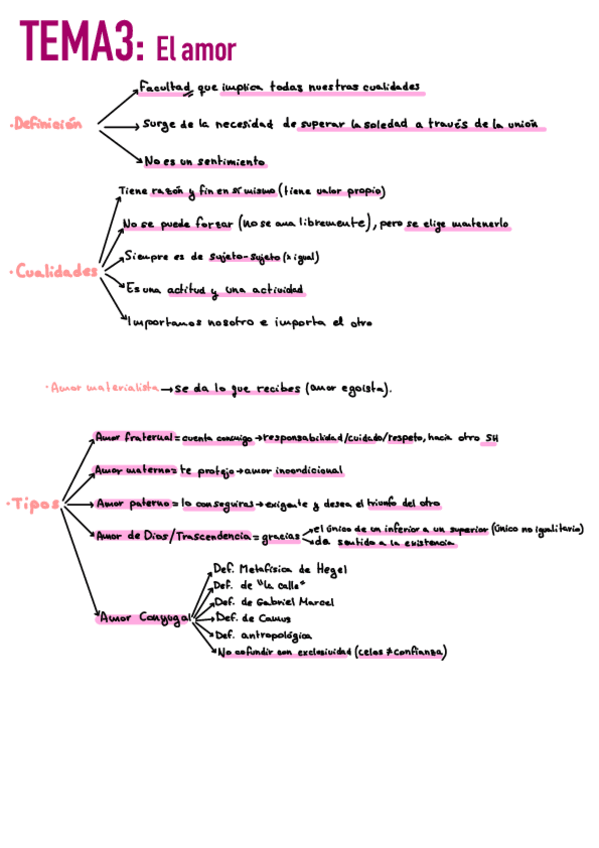 TEMA3: El amor
Facultad, que implica todas nuestras cualidades
·Definición
Surge de la necesidad de superar la soledad a través de la unión
No es un sentimiento
Tiene razón y fin en sí mismo (tiene valor propio)
No se puede forzar (no se ama libremente), pero se elige mantenerlo
Siempre es de sujeto-sujeto (x igual)
·Cualidades
Es una actitud y una actividad
Importamos nosotro e importa el otro
·Amor materialista → se da lo que recibes (amor egoísta).
Amor fraternal = cuenta conmigo → responsabilidad/cuidado/respeto, hacia otro SH
Amor materno = te protejo → amor incondicional
·Tipos
Amor paterno = lo conseguiras → exigente y desea el triunfo del otro
el único de un inferior a un superior (único no igualitario)
Amor de Dios/Trascendencia = gracias
da sentido a la existencia
Def. Metafísica de Hegel
Def. de "la calle"
Def. de Gabriel Marcel
Amor Conyugal
Def. de Camus
Def. antropológica
No cofundir con exclusividad (celos ≠ confianza)